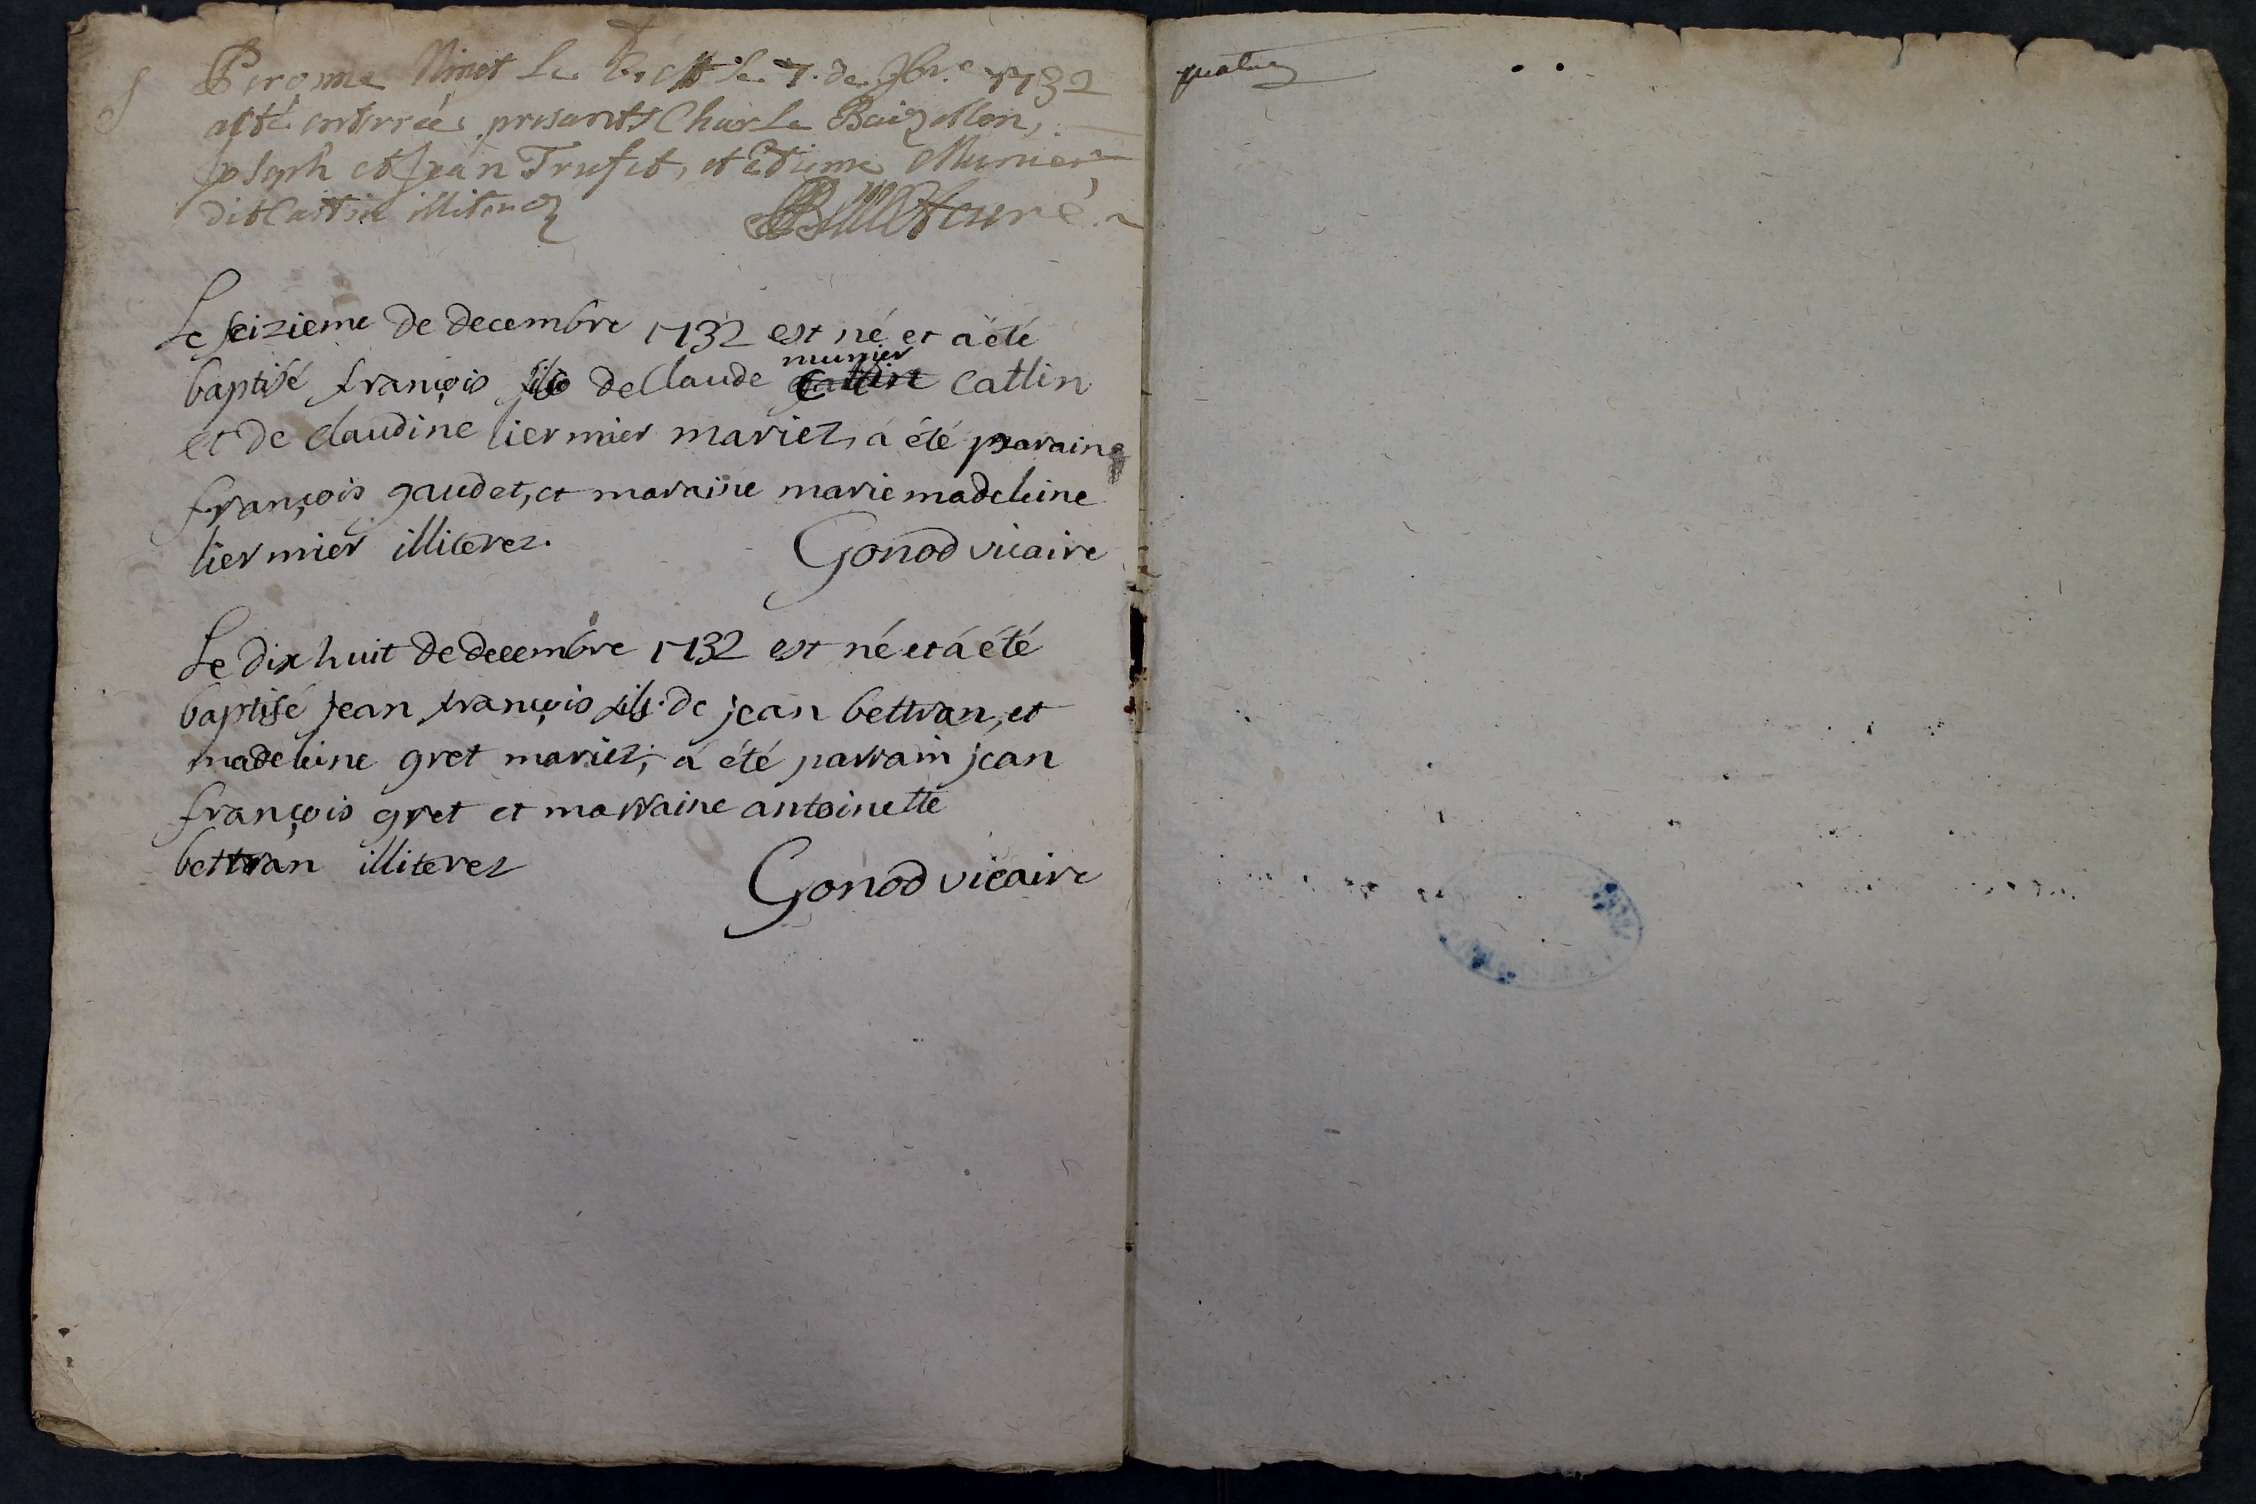 S Peronne Ninet le 7. de 9bre 1732
a été enterrée presents Charle Baizellon,
Joseph et Jean Trufet, et Etienne Munier
dit Cattin illiterez Curé.
Le seizieme de decembre 1732 est né et a été
munier
baptisé françois fils de Claude Cattin Catlin
et de claudine liermier mariez, a été parain
françois gaudet, et maraine marie madeleine
liermier illiterez. Gonod vicaire
Le dix huit de decembre 1732 est né et á été
baptisé jean françois fils de jean bettran, et
madeleine gret mariez, á été parrain jean
françois gret et marraine antoinette
bettran illiterez Gonod vicaire